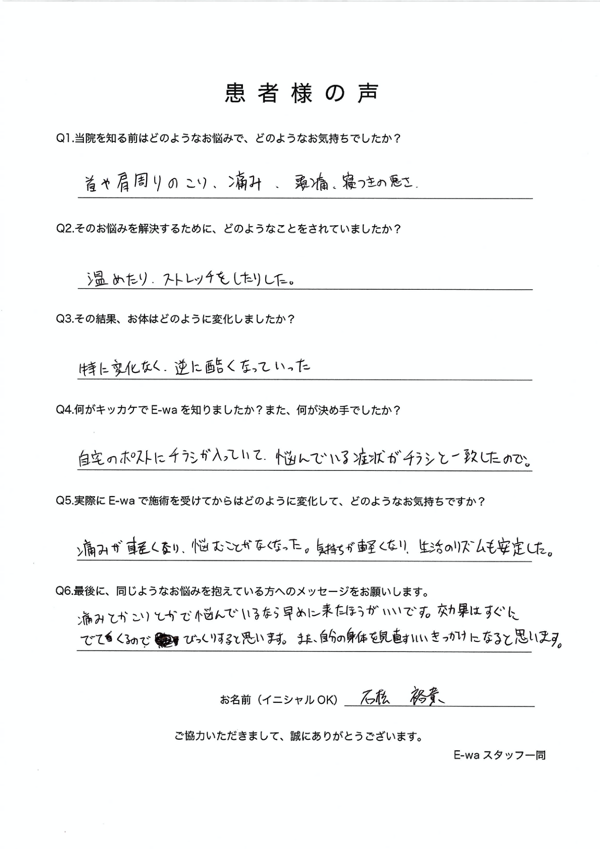 患者様の声
Q1.当院を知る前はどのようなお悩みで、どのようなお気持ちでしたか？
首や肩周りのこり、痛み、頭痛、寝つきの悪さ.
Q2.そのお悩みを解決するために、どのようなことをされていましたか？
温めたり、ストレッチをしたりした。
Q3.その結果、お体はどのように変化しましたか？
特に変化なく、逆に酷くなっていった
Q4.何がキッカケでE-waを知りましたか？また、何が決め手でしたか？
自宅のポストにチラシが入っていて、悩んでいる症状がチラシと一致したので。
Q5.実際にE-waで施術を受けてからはどのように変化して、どのようなお気持ちですか？
痛みが軽くなり、悩むことがなくなった。気持ちが軽くなり、生活のリズムも安定した。
Q6.最後に、同じようなお悩みを抱えている方へのメッセージをお願いします。
痛みとかこりとかで悩んでいるなら早めに来たほうがいいです。効果はすぐに
でてくるので びっくりすると思います。また、自分の身体を見直すいいきっかけになると思います。
お名前（イニシャルOK） 石松 裕貴
ご協力いただきまして、誠にありがとうございます。
E-waスタッフ一同